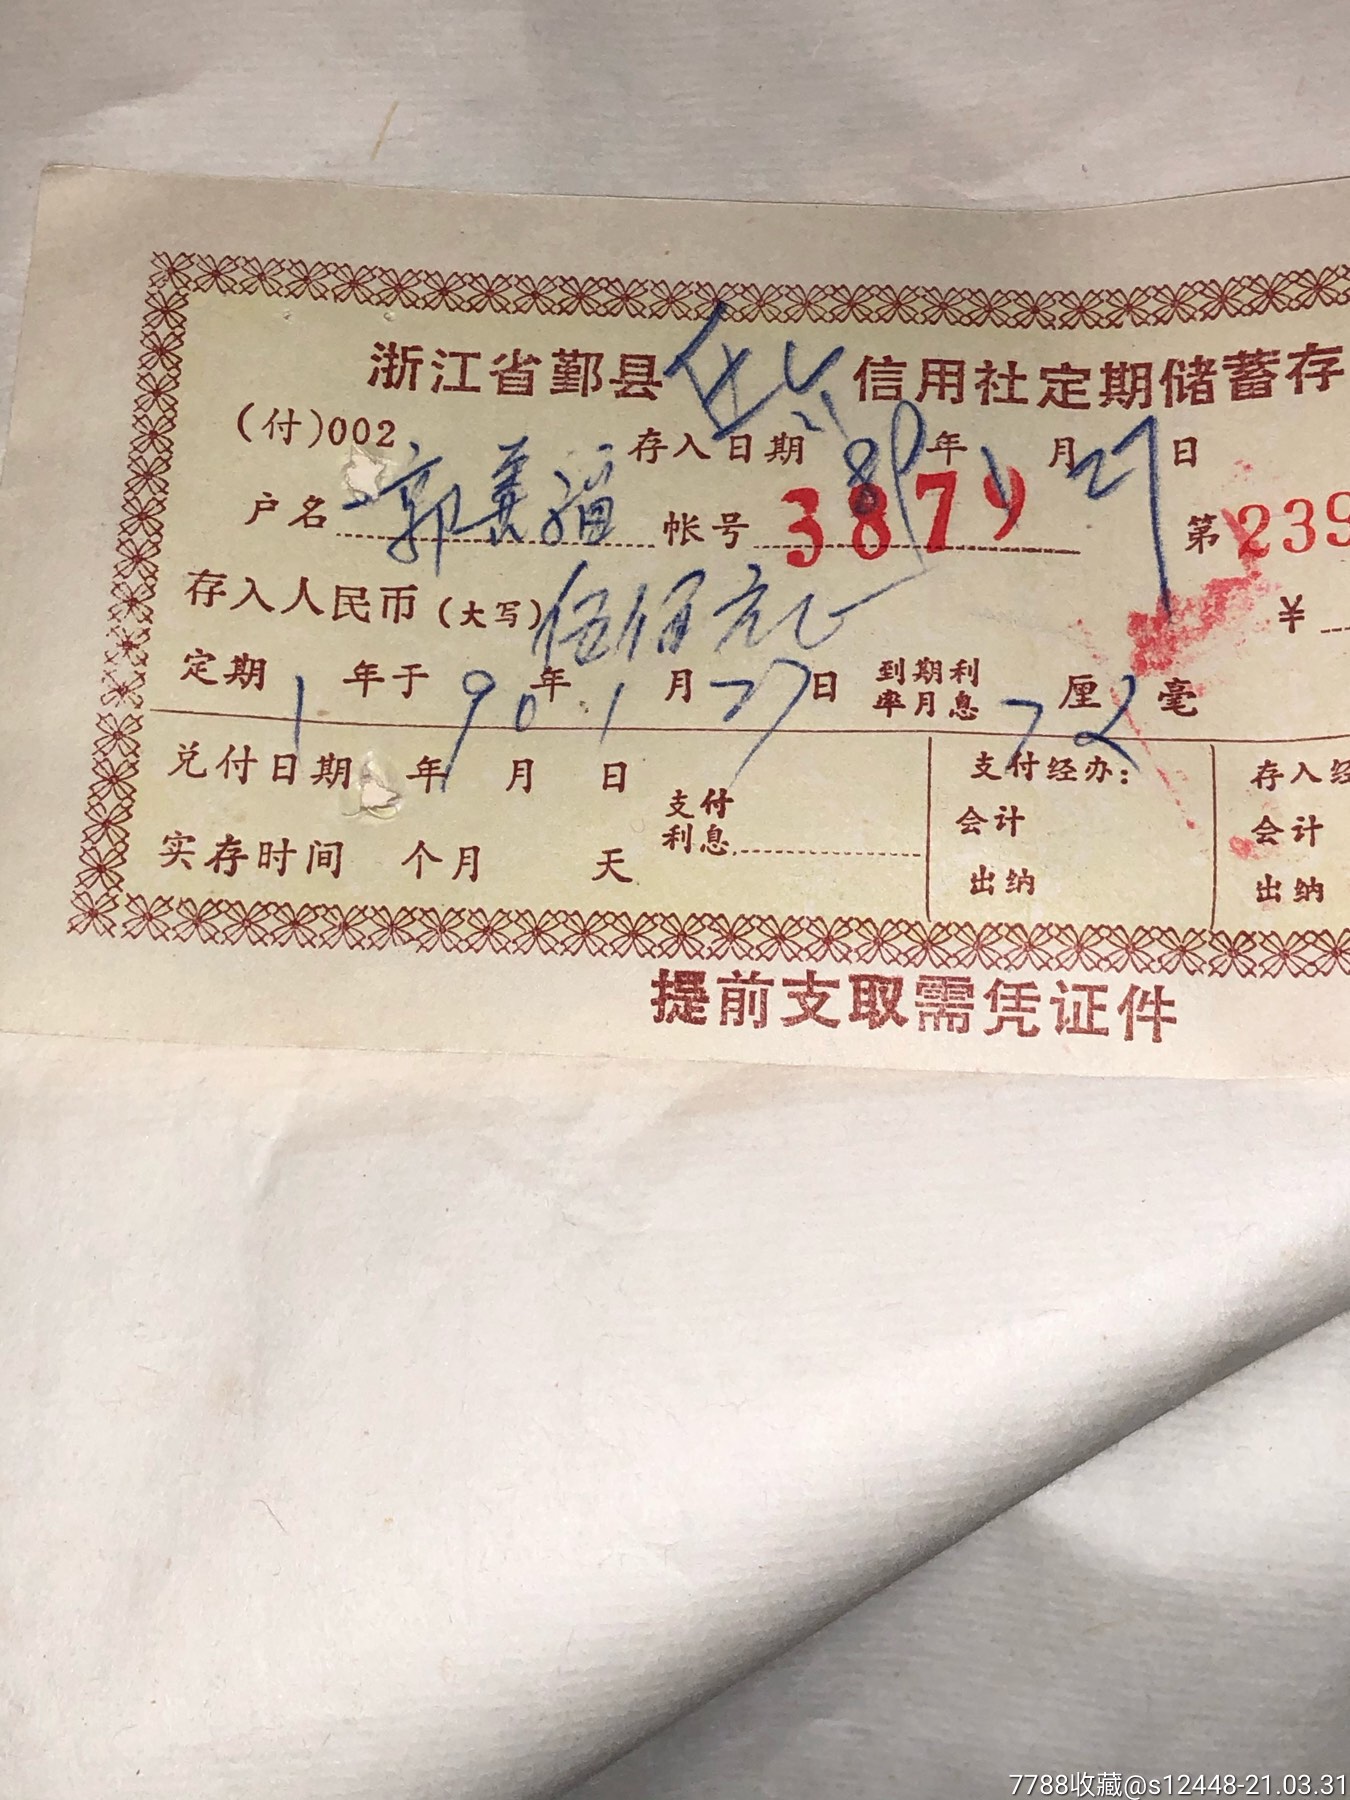 浙江省鄞县 信用社定期储蓄存
(付)002 存入日期 89年1月27日
户名 郭美福 帐号 3879 第239
存入人民币(大写)伍佰元正 ¥
定期1年于90年1月27日 到期利率月息7厘2毫
兑付日期 年 月 日 支付利息 支付经办: 存入经
实存时间 个月 天 会计 会计
出纳 出纳
提前支取需凭证件
7788收藏@s12448-21.03.31